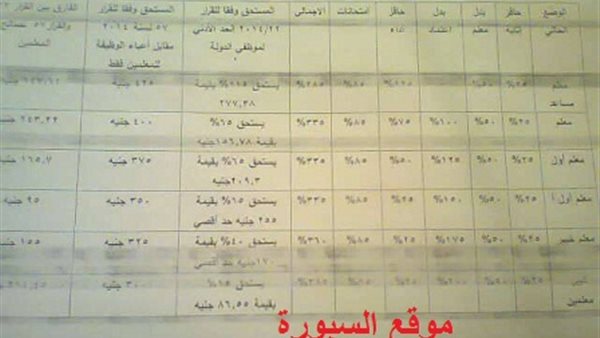 الوضع الحالي | حافز إثابة | بدل معلم | بدل اعتماد | حافز أداء | امتحانات | الاجمالي | المستحق وفقا للقرار ٢٠١٤/٢٢ الحد الأدنى لموظفي الدولة | المستحق وفقا للقرار ٥٧ لسنة ٢٠١٤ مقابل أعباء الوظيفة للمعلمين فقط | الفارق بين القرار والقرار ٥٧ المعلمين
معلم مساعد | %٢٥ | %٥٠ | %٨٥ | %٢٨٥ | يستحق %١١٥ بقيمة ٢٧٧.٣٨ | ٤٢٥ جنيه
معلم | %٢٥ | %٥٠ | %١٠٠ | %٧٥ | %٨٥ | %٣٣٥ | يستحق %٦٥ بقيمة ١٥٦.٧٨ جنيه | ٤٠٠ جنيه | ٢٤٣.٢٢ جنيه
معلم أول | %٢٥ | %٥٠ | %١٢٥ | %٥٠ | %٨٥ | %٣٣٥ | يستحق %٦٥ بقيمة ٢٠٩.٣ جنيه | ٣٧٥ جنيه | ١٦٥.٧ جنيه
معلم أول أ | %٢٥ | %٥٠ | %١٥٠ | %٢٥ | %٨٥ | %٣٣٥ | يستحق %٦٥ بقيمة ٢٥٥ جنيه حد أقصي | ٣٥٠ جنيه | ٩٥ جنيه
معلم خبير | %٢٥ | %٥٠ | %١٧٥ | %٢٥ | %٨٥ | %٣٦٠ | يستحق %٤٠ بقيمة ١٧٠ جنيه حد أقصي | ٣٢٥ جنيه | ١٥٥ جنيه
كبير معلمين | يستحق %١٥ بقيمة ٨٦.٥٥ جنيه | ٣٠٠ جنيه
موقع السبورة